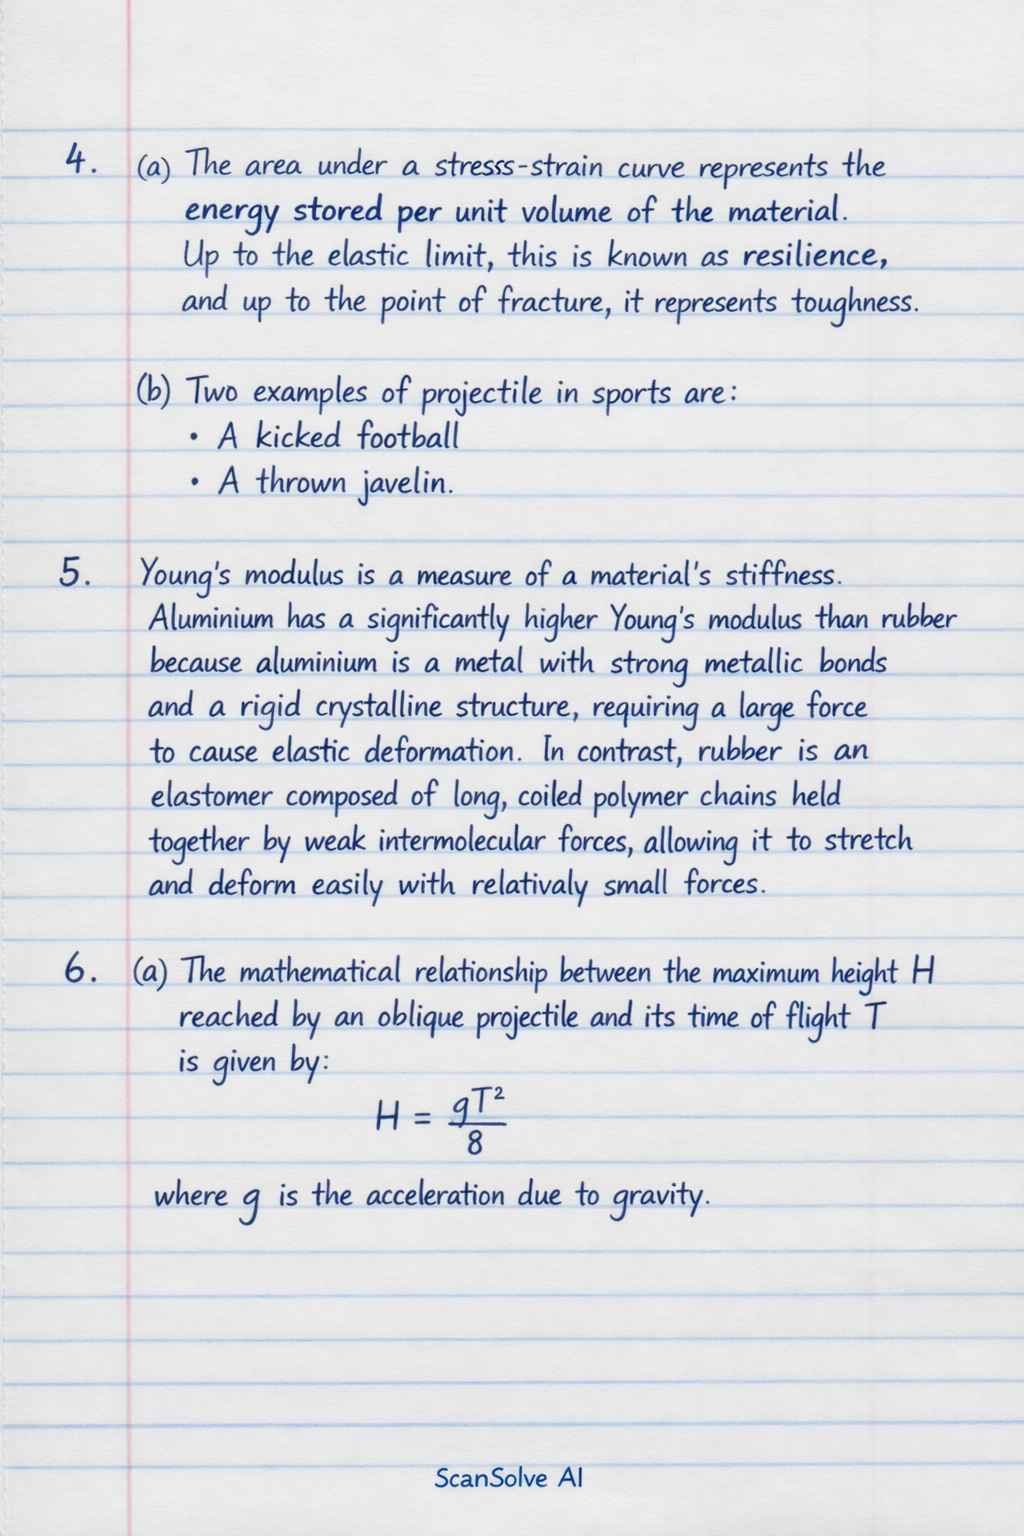 4. (a) The area under a stresss-strain curve represents the
energy stored per unit volume of the material.
Up to the elastic limit, this is known as resilience,
and up to the point of fracture, it represents toughness.
(b) Two examples of projectile in sports are:
• A kicked football
• A thrown javelin.
5. Young's modulus is a measure of a material's stiffness.
Aluminium has a significantly higher Young's modulus than rubber
because aluminium is a metal with strong metallic bonds
and a rigid crystalline structure, requiring a large force
to cause elastic deformation. In contrast, rubber is an
elastomer composed of long, coiled polymer chains held
together by weak intermolecular forces, allowing it to stretch
and deform easily with relativaly small forces.
6. (a) The mathematical relationship between the maximum height H
reached by an oblique projectile and its time of flight T
is given by:
H = gT²/8
where g is the acceleration due to gravity.
ScanSolve AI